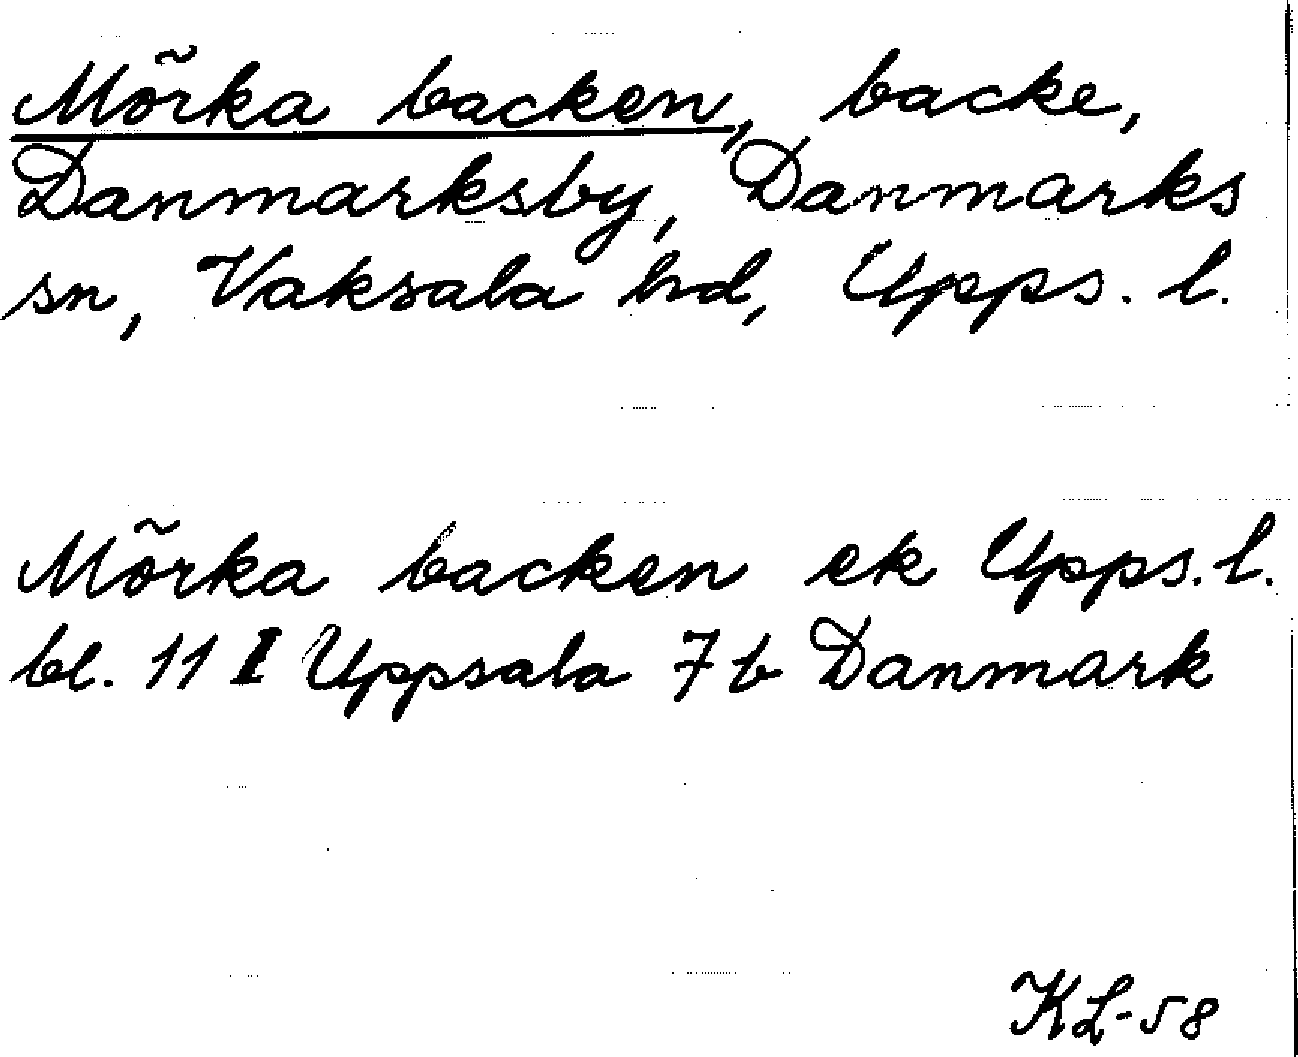 Mörka backen, backe,
Danmarksby, Danmarks
sn, Vaksala hd, Upps. l.
Mörka backen ek Upps. l.
bl. 11 I Uppsala 7 b Danmark
KL-58